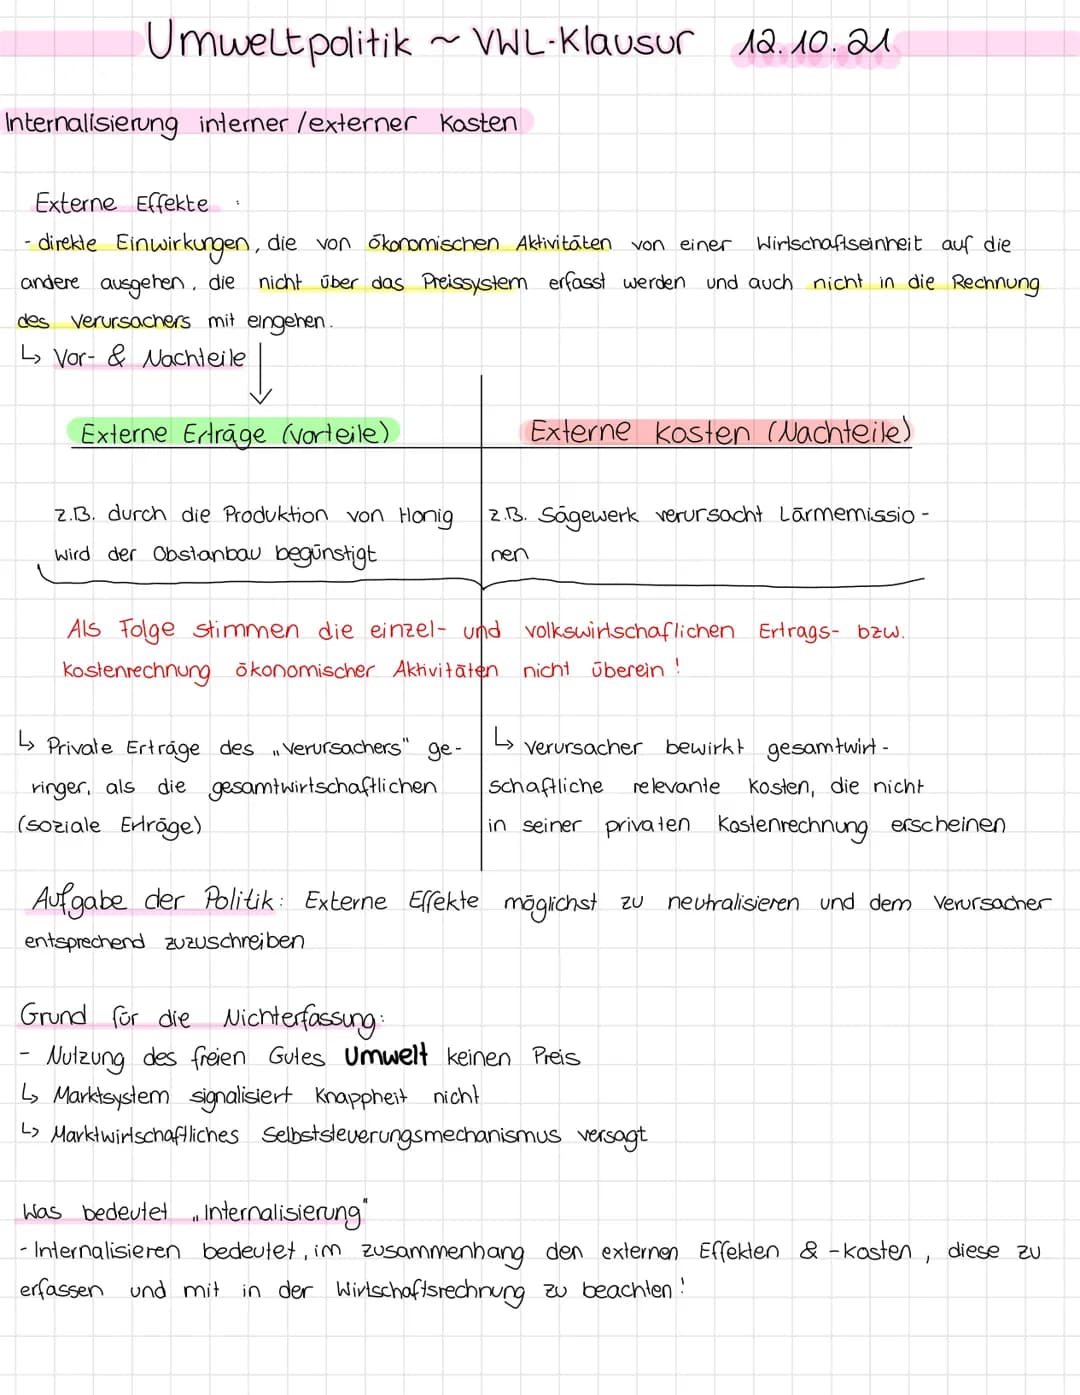 Umweltpolitik ~ VWL-Klausur 12.10.21
Internalisierung interner/externer Kosten
Externe Effekte :
- direkte Einwirkungen, die von ökonomischen Aktivitäten von einer Wirtschaftseinheit auf die
andere ausgehen, die nicht über das Preissystem erfasst werden und auch nicht in die Rechnung
des Verursachers mit eingehen.
↳ Vor- & Nachteile
Externe Erträge (Vorteile)
z.B. durch die Produktion von Honig
wird der Obstanbau begünstigt
Externe Kosten (Nachteile)
z.B. Sägewerk verursacht Lärmemissio-
nen
Als Folge stimmen die einzel- und volkswirtschaflichen Ertrags- bzw.
Kostenrechnung ökonomischer Aktivitäten nicht überein!
↳ Private Erträge des „Verursachers" ge-
ringer, als die gesamtwirtschaftlichen
(soziale Erträge)
↳ Verursacher bewirkt gesamtwirt-
schaftliche relevante Kosten, die nicht
in seiner privaten Kostenrechnung erscheinen
Aufgabe der Politik: Externe Effekte möglichst zu neutralisieren und dem Verursacher
entsprechend zuzuschreiben
Grund für die Nichterfassung:
- Nutzung des freien Gutes Umwelt keinen Preis
↳ Marktsystem signalisiert Knappheit nicht
↳ Marktwirtschaftliches Selbststeuerungsmechanismus versagt
Was bedeutet „Internalisierung"
- Internalisieren bedeutet, im Zusammenhang den externen Effekten & -kosten, diese zu
erfassen und mit in der Wirtschaftsrechnung zu beachten!